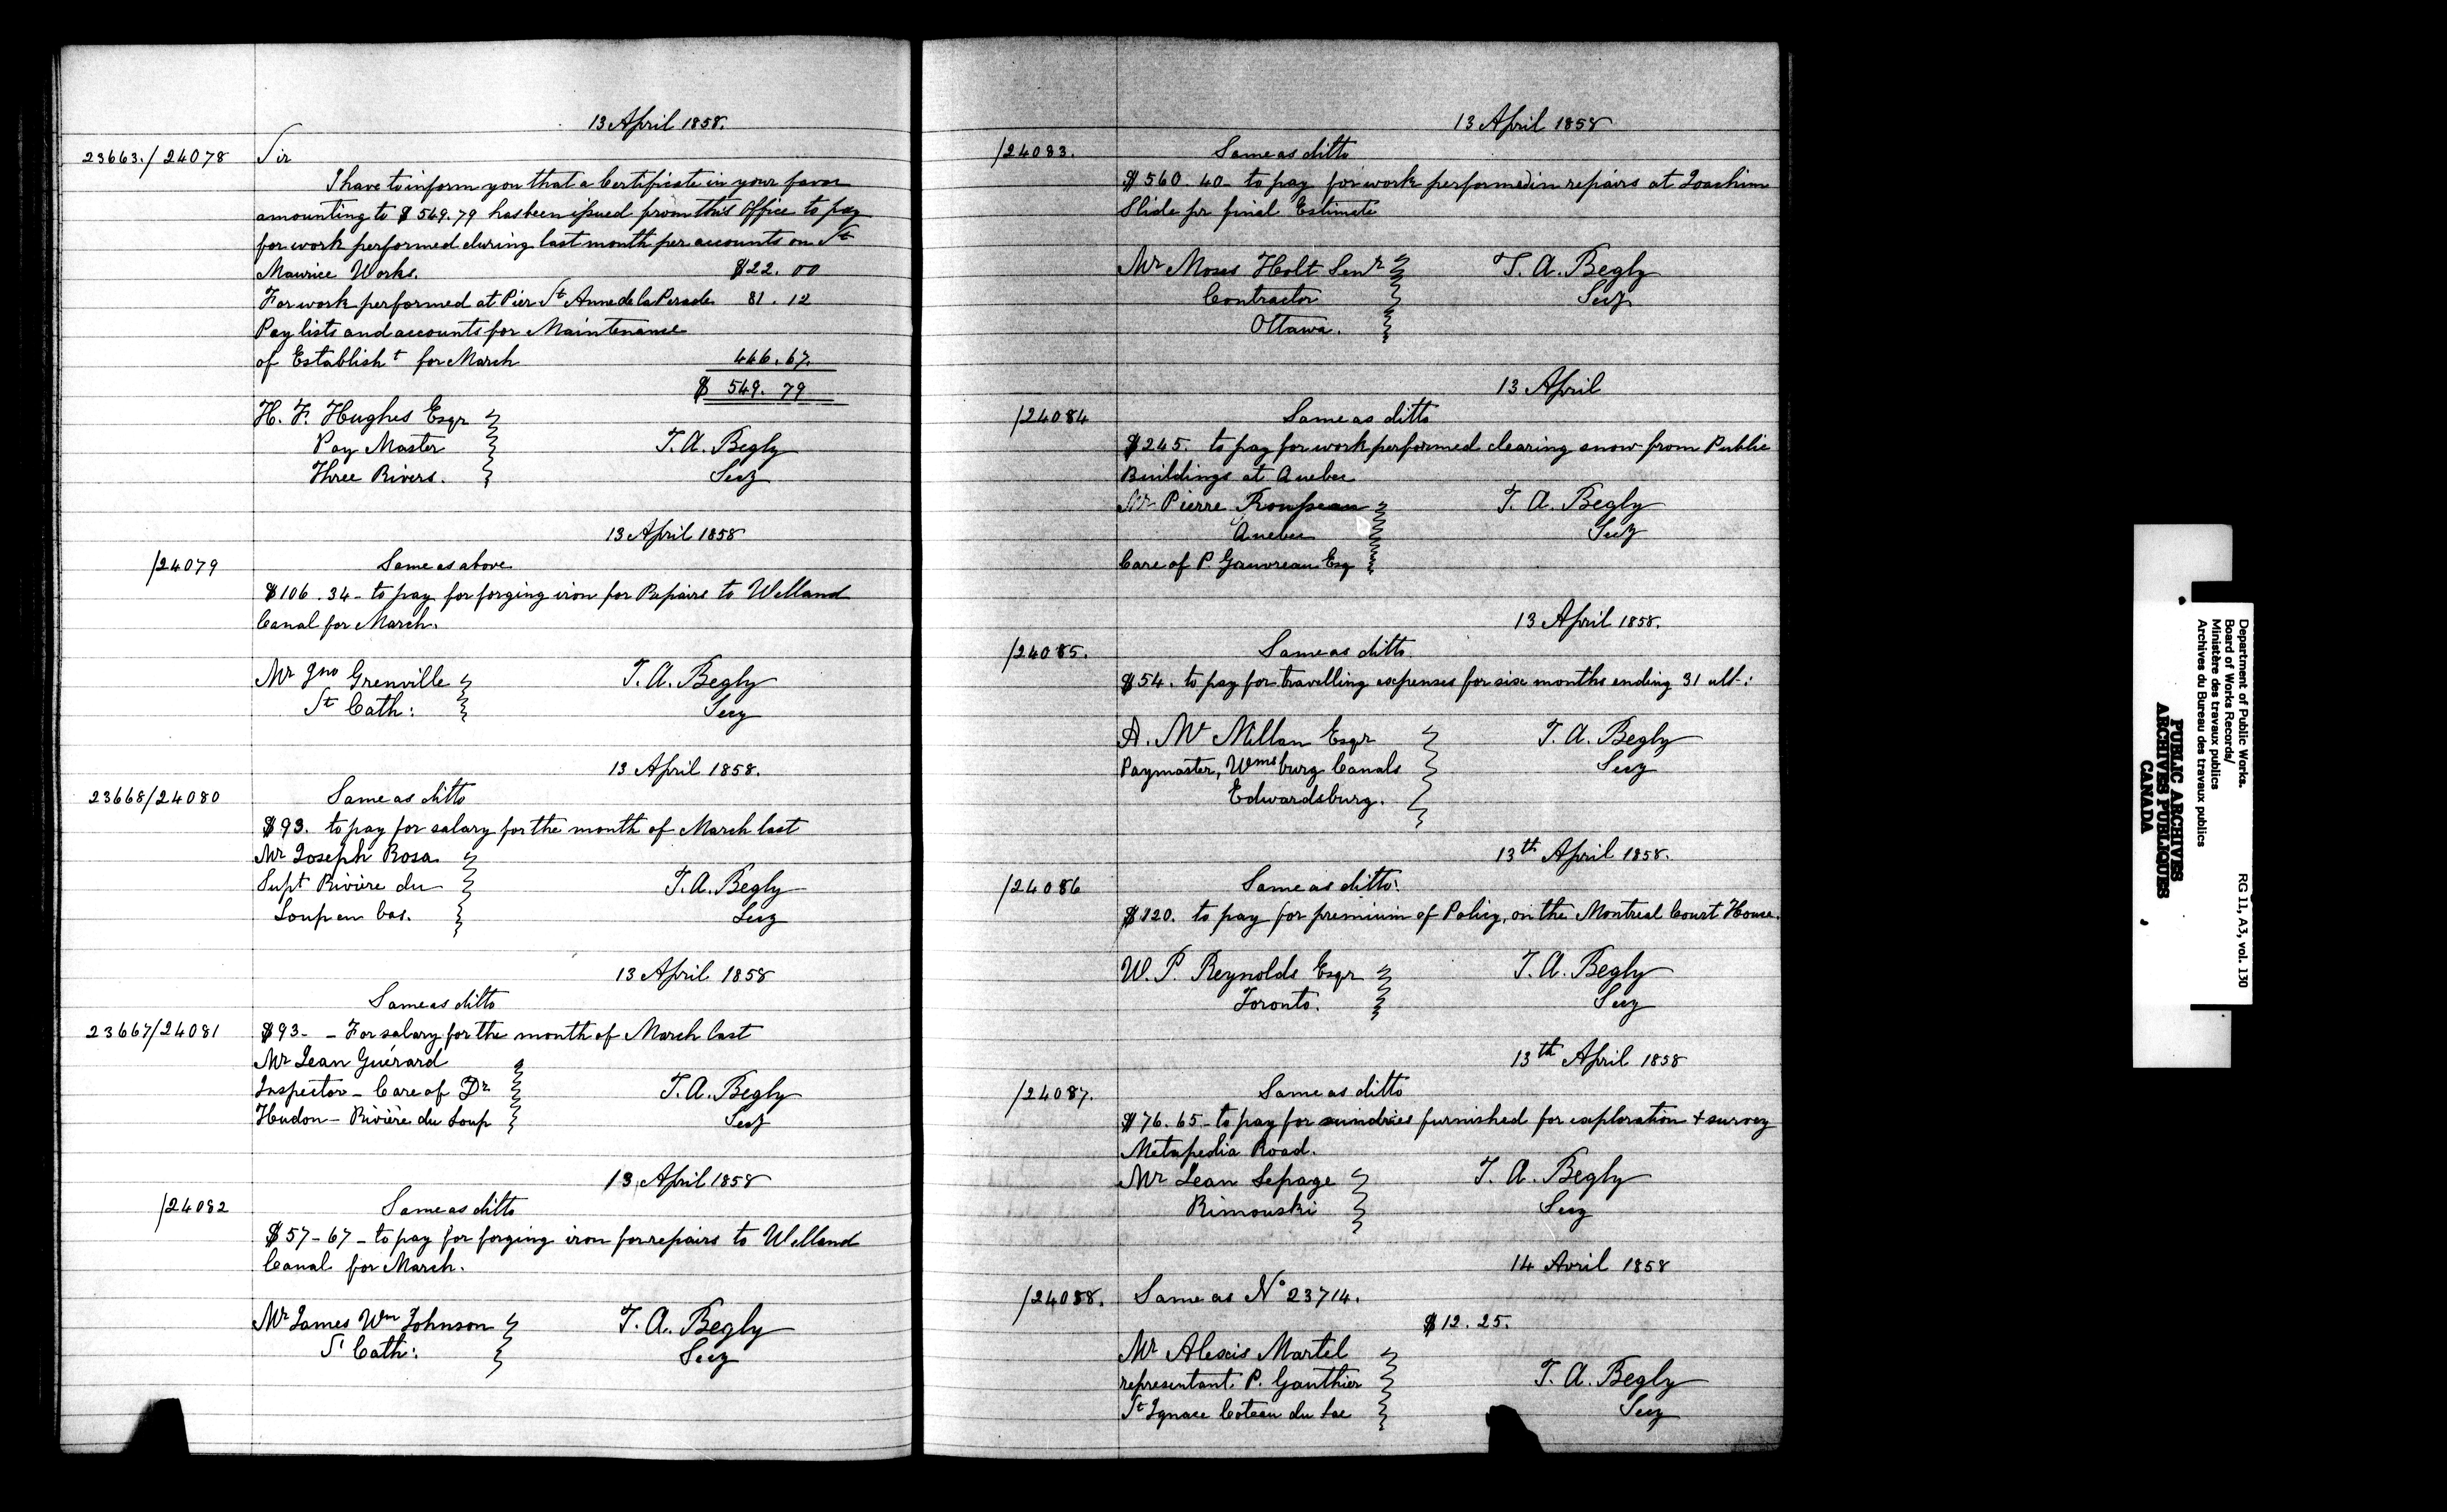 13 April 1858.
23663./24078 Sir
I have to inform you that a Certificate in your favor
amounting to $549.79 has been issued from this Office to pay
for work performed during last month per accounts on St
Maurice Works. $22.00
For work performed at Pier St Anne de la Perade 81.12
Pay lists and accounts for Maintenance
of Establisht for March 446.67.
$ 549.79
H. F. Hughes Esqr
Pay Master T. A. Begly
Three Rivers. Secy
13 April 1858
/24079 Same as above
$106.34 - to pay for forging iron for Repairs to Welland
Canal for March.
Mr Jno Grenville T. A. Begly
St Cath: Secy
13 April 1858.
23668/24080 Same as ditto
$93. to pay for salary for the month of March last
Mr Joseph Rosa
Supt Rivière du T. A. Begly
Loup en bas. Secy
13 April 1858
Same as ditto
23667/24081 $93- - For salary for the month of March last
Mr Jean Guérard
Inspector - Care of Dr T. A. Begly
Hudon - Rivière du Loup Secy
13 April 1858
/24082 Same as ditto
$57-67 - to pay for forging iron for repairs to Welland
Canal for March.
Mr James Wm Johnson T. A. Begly
St Cath: Secy
13 April 1858
/24083. Same as ditto
$560.40 - to pay for work performed in repairs at Joachim
Slide pr final Estimate
Mr Moses Holt Senr T. A. Begly
Contractor Secy
Ottawa.
13 April
/24084 Same as ditto
$245. to pay for work performed clearing snow from Public
Buildings at Quebec
Mr Pierre T. A. Begly
Quebec Secy
Care of P. Gauvreau Esq
13 April 1858.
/24085. Same as ditto.
$54. to pay for travelling expenses for six months ending 31 ult.:
A. Mc Millan Esqr T. A. Begly
Paymaster, Wmsburg Canals Secy
Edwardsburg.
13th April 1858.
/24086 Same as ditto.
$120. to pay for premium of Policy, on the Montreal Court House.
W. P. Reynolds Esqr T. A. Begly
Toronto. Secy
13th April 1858
/24087. Same as ditto
$76.65 - to pay for sundries furnished for exploration & survey
Metapedia Road.
Mr Jean Lepage T. A. Begly
Rimouski Secy
14 Avril 1858
/24088. Same as No 23714.
$12.25.
Mr Alexis Martel
representant P. Gauthier T. A. Begly
St Ignace Coteau du Lac Secy
Department of Public Works.
Board of Works Records/
Ministère des travaux publics
Archives du Bureau des travaux publics
RG 11, A3, vol. 130
PUBLIC ARCHIVES
ARCHIVES PUBLIQUES
CANADA